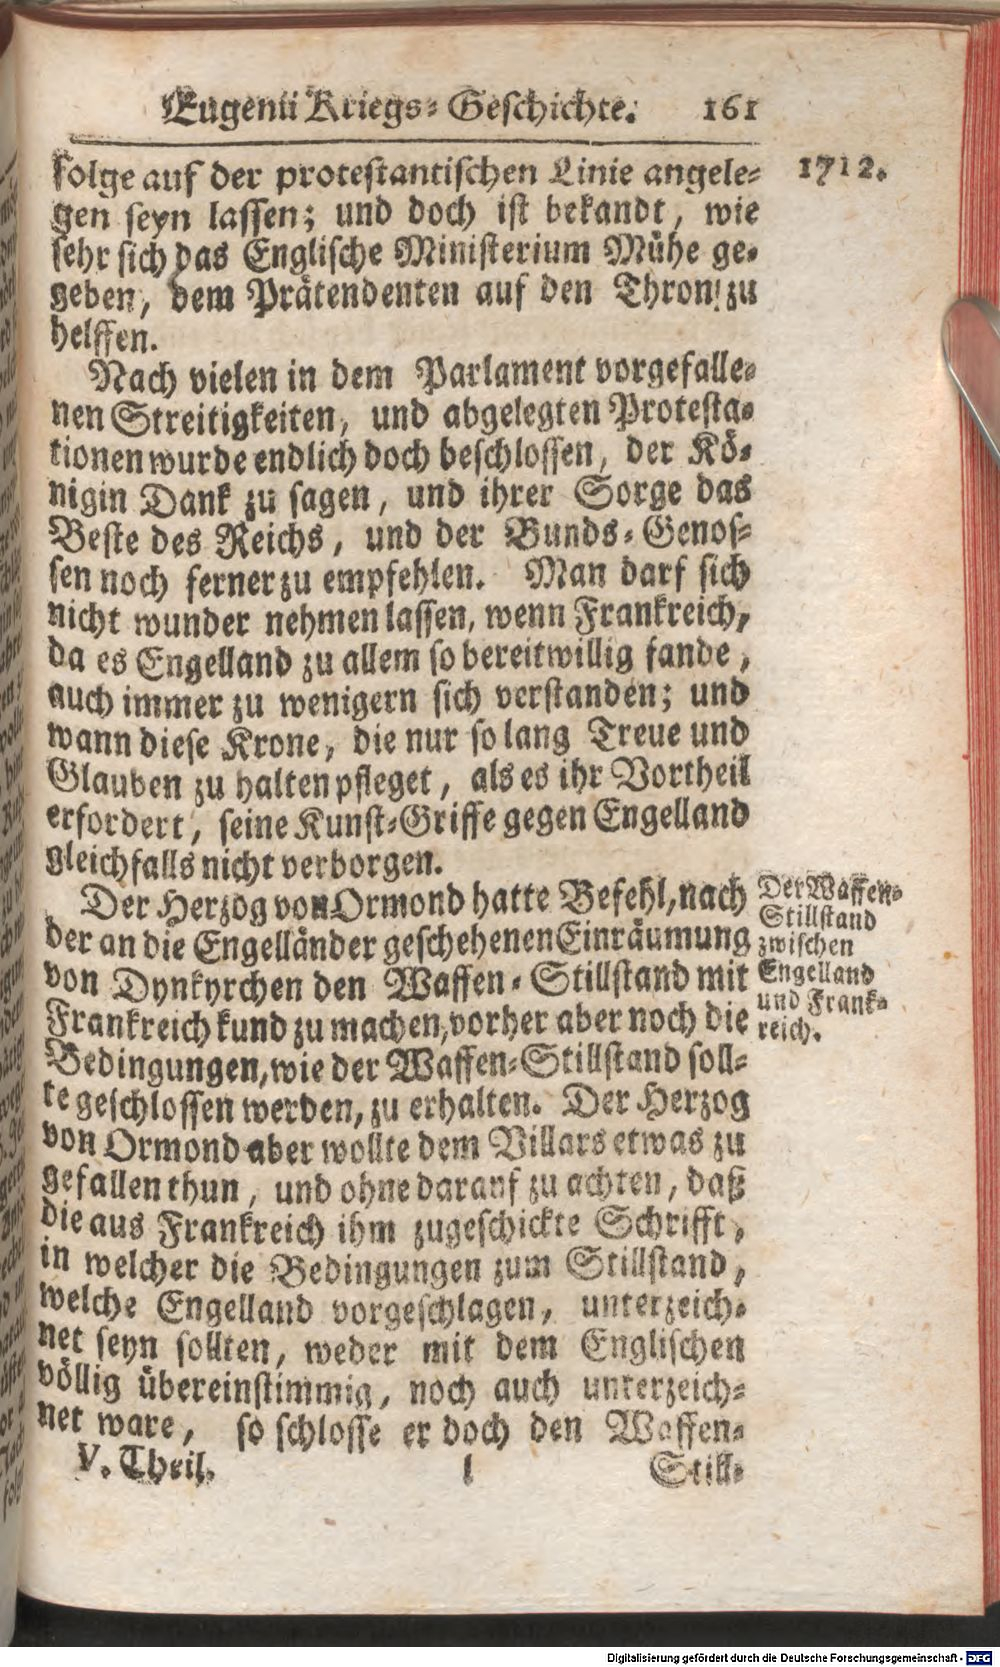 Eugenii Kriegs-Geschichte. 161
folge auf der protestantischen Linie angele- 1712.
gen seyn lassen; und doch ist bekandt, wie
sehr sich das Englische Ministerium Mühe ge-
geben, dem Prätendenten auf den Thron zu
helffen.
Nach vielen in dem Parlament vorgefalle-
nen Streitigkeiten, und abgelegten Protesta-
tionen wurde endlich doch beschlossen, der Kö-
nigin Dank zu sagen, und ihrer Sorge das
Beste des Reichs, und der Bunds-Genos-
sen noch ferner zu empfehlen. Man darf sich
nicht wunder nehmen lassen, wenn Frankreich,
da es Engelland zu allem so bereitwillig fande,
auch immer zu wenigern sich verstanden; und
wann diese Krone, die nur so lang Treue und
Glauben zu halten pfleget, als es ihr Vortheil
erfordert, seine Kunst-Griffe gegen Engelland
gleichfalls nicht verborgen.
Der Herzog von Ormond hatte Befehl, nach
der an die Engelländer geschehenen Einräumung
von Dynkyrchen den Waffen-Stillstand mit
Frankreich kund zu machen, vorher aber noch die
Bedingungen, wie der Waffen-Stillstand soll-
te geschlossen werden, zu erhalten. Der Herzog
von Ormond aber wollte dem Villars etwas zu
gefallen thun, und ohne darauf zu achten, daß
die aus Frankreich ihm zugeschickte Schrifft,
in welcher die Bedingungen zum Stillstand,
welche Engelland vorgeschlagen, unterzeich-
net seyn sollten, weder mit dem Englischen
völlig übereinstimmig, noch auch unterzeich-
net ware, so schlosse er doch den Waffen-
V. Theil. l Still-
Der Waffen-
Stillstand
zwischen
Engelland
und Frank-
reich.
Digitalisierung gefördert durch die Deutsche Forschungsgemeinschaft - DFG